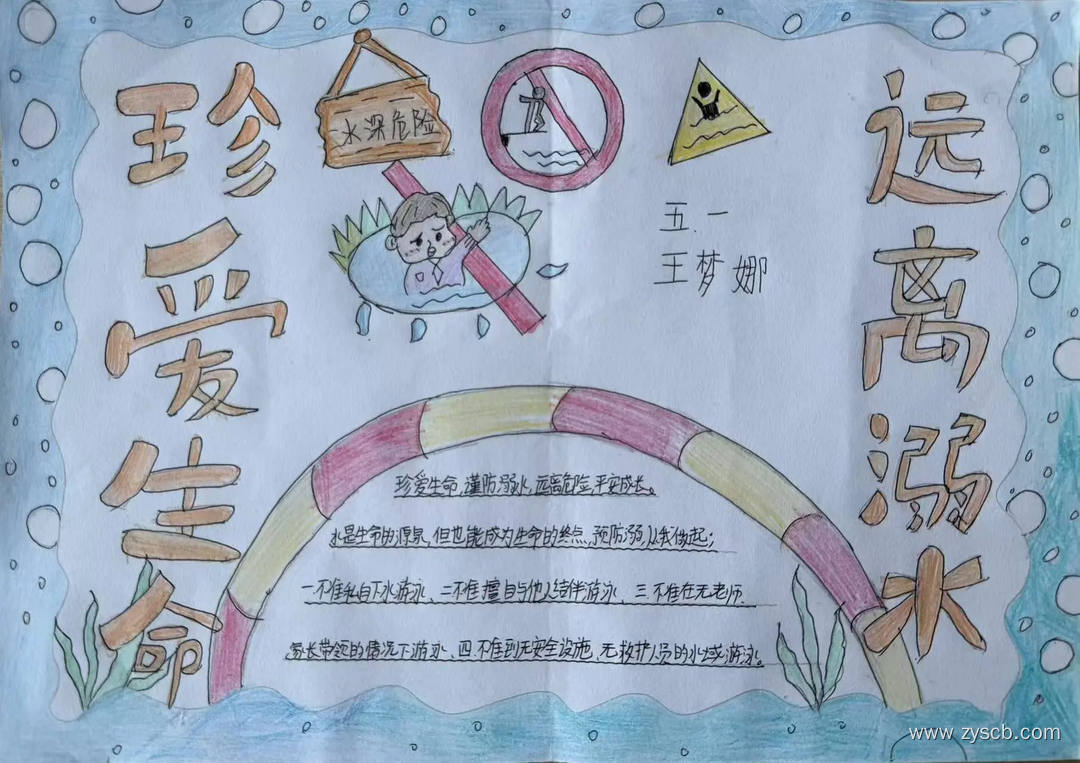 珍爱生命
远离溺水
水深危险
五.一
王梦娜
珍爱生命,谨防溺水,远离危险,平安成长。
水是生命的源泉,但也能成为生命的终点,预防溺,从我做起;
一不准私自下水游泳、二不准擅自与他人结伴游泳、三不准在无老师.
家长带领的情况下游泳、四.不准到无安全设施、无救护人员的水域游泳。
www.zyscb.com